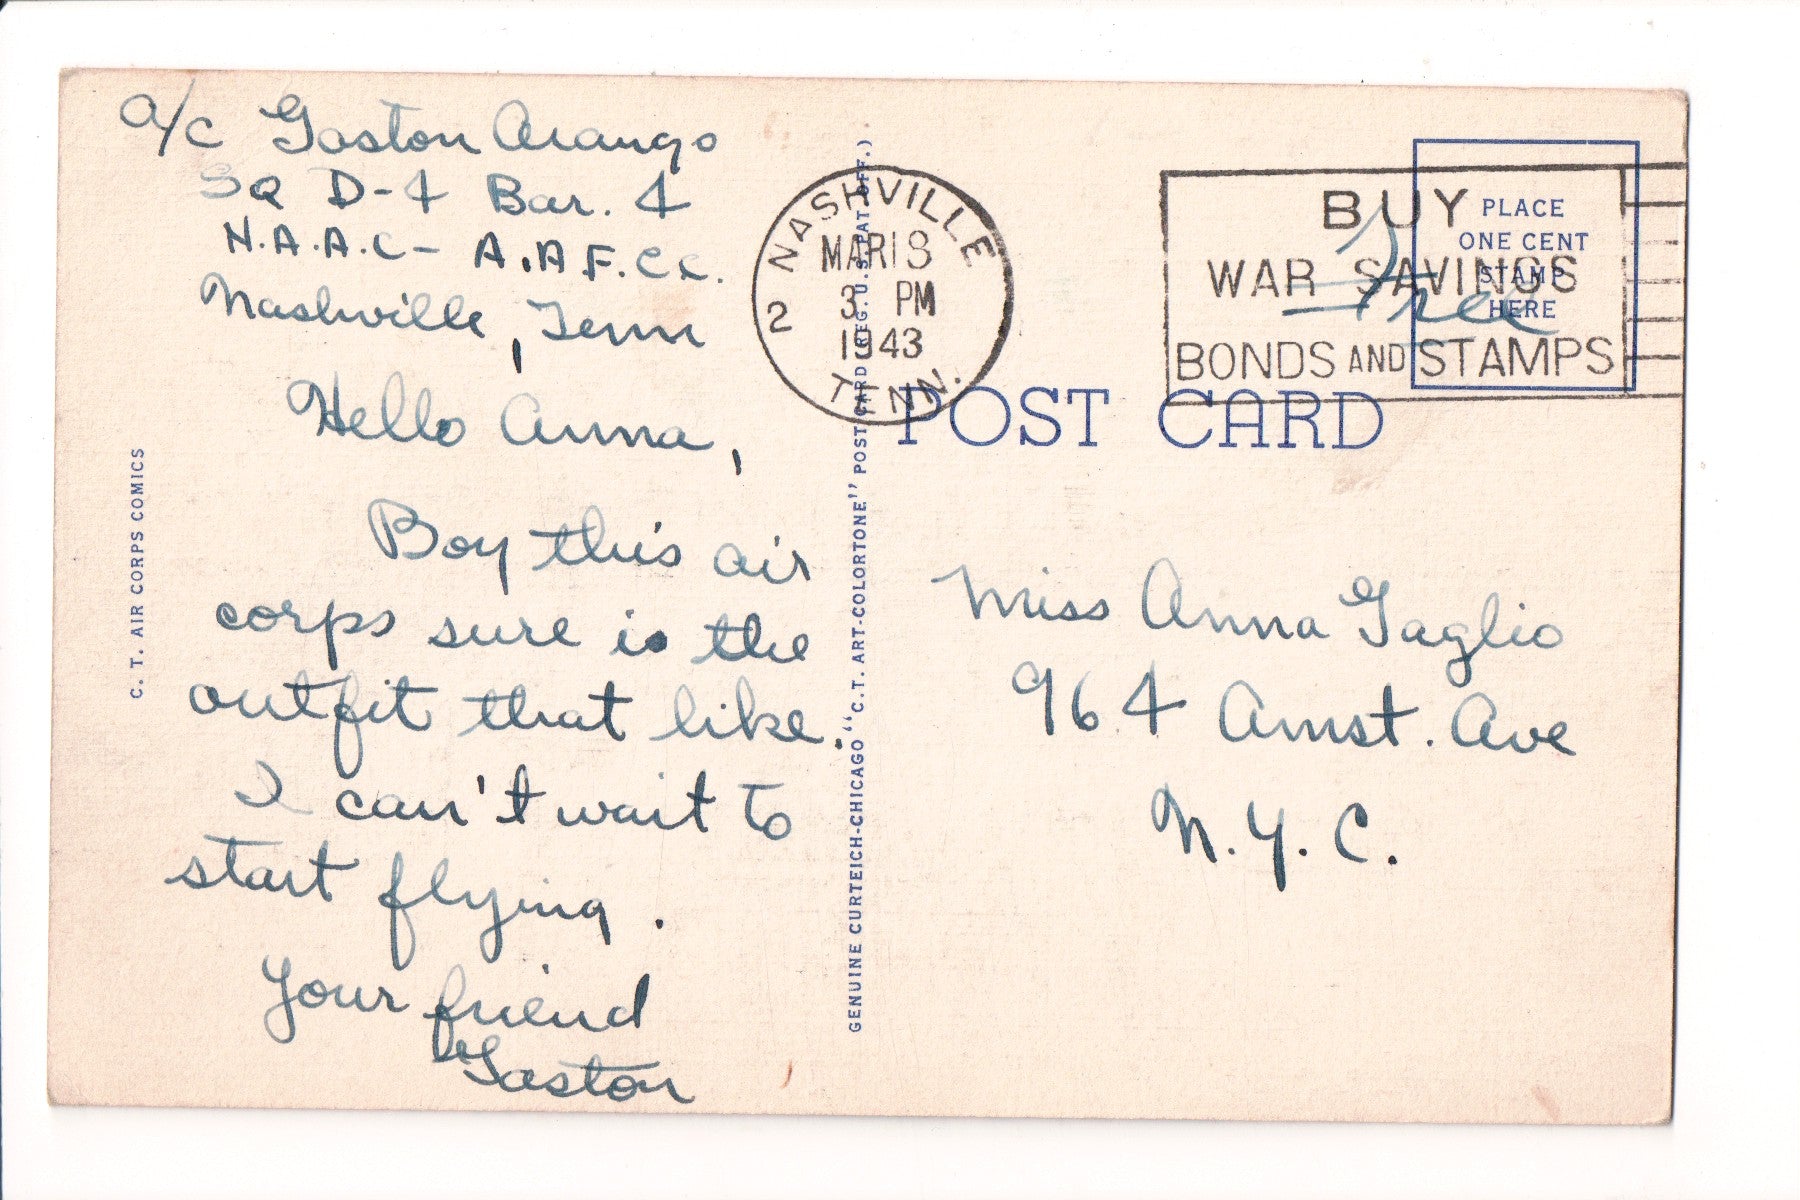 a/c Gaston Arango
SQ D-4 Bar. 4
N.A.A.C- A.A.F.C.C.
Nashville, Tenn
Hello Anna,
Boy this air
corps sure is the
outfit that like.
I can't wait to
start flying.
Your friend
Gaston
C. T. AIR CORPS COMICS
GENUINE CURTEICH-CHICAGO "C.T. ART-COLORTONE" POST CARD (REG. U.S. PAT. OFF.)
NASHVILLE
MAR 18
3 PM
1943
2
TENN.
BUY
WAR SAVINGS
BONDS AND STAMPS
Free
PLACE
ONE CENT
STAMP
HERE
POST CARD
Miss Anna Gaglio
964 Amst. Ave
N.Y.C.